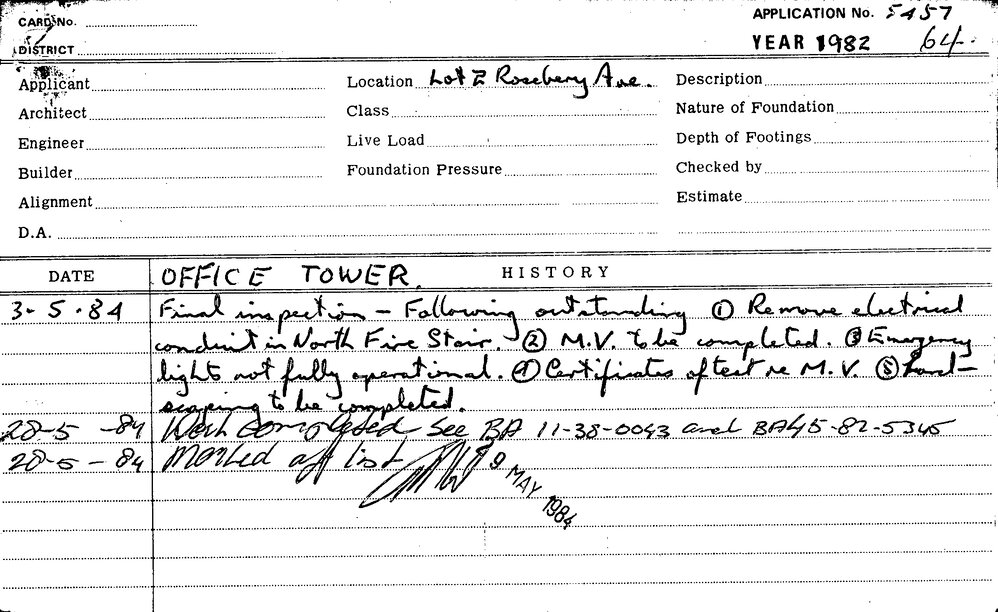 CARD No.
APPLICATION No. 5457
DISTRICT
YEAR 1982 64.
Applicant
Location Lot 2 Rosebery Ave.
Description
Architect
Class
Nature of Foundation
Engineer
Live Load
Depth of Footings
Builder
Foundation Pressure
Checked by
Alignment
Estimate
D.A.
DATE
OFFICE TOWER.
HISTORY
3-5.84 Final inspection - Following outstanding ① Remove electrical
conduit in North Fire Stair. ② M.V. to be completed. ③ Emergency
lights not fully operational. ④ Certificates of test re M.V. ⑤ Land-
scaping to be completed.
28-5-84 Work completed see BA 11-38-0043 and BA45-82-5345
28-5-84 Marked off list
9 MAY 1984